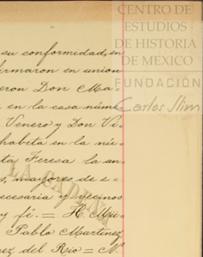 CENTRO DE
ESTUDIOS
DE HISTORIA
DE MEXICO
FUNDACIÓN
Carlos Slim
su conformidad, en
firmaron en union
eron Don Ma-
en la casa núme
Venero y Don Vi-
habita en la ca-
ta Teresa la an
s, mayores de e-
ecesaria y vecinos
y fi. = H. Mu-
Pablo Martinez
ez del Rio = N